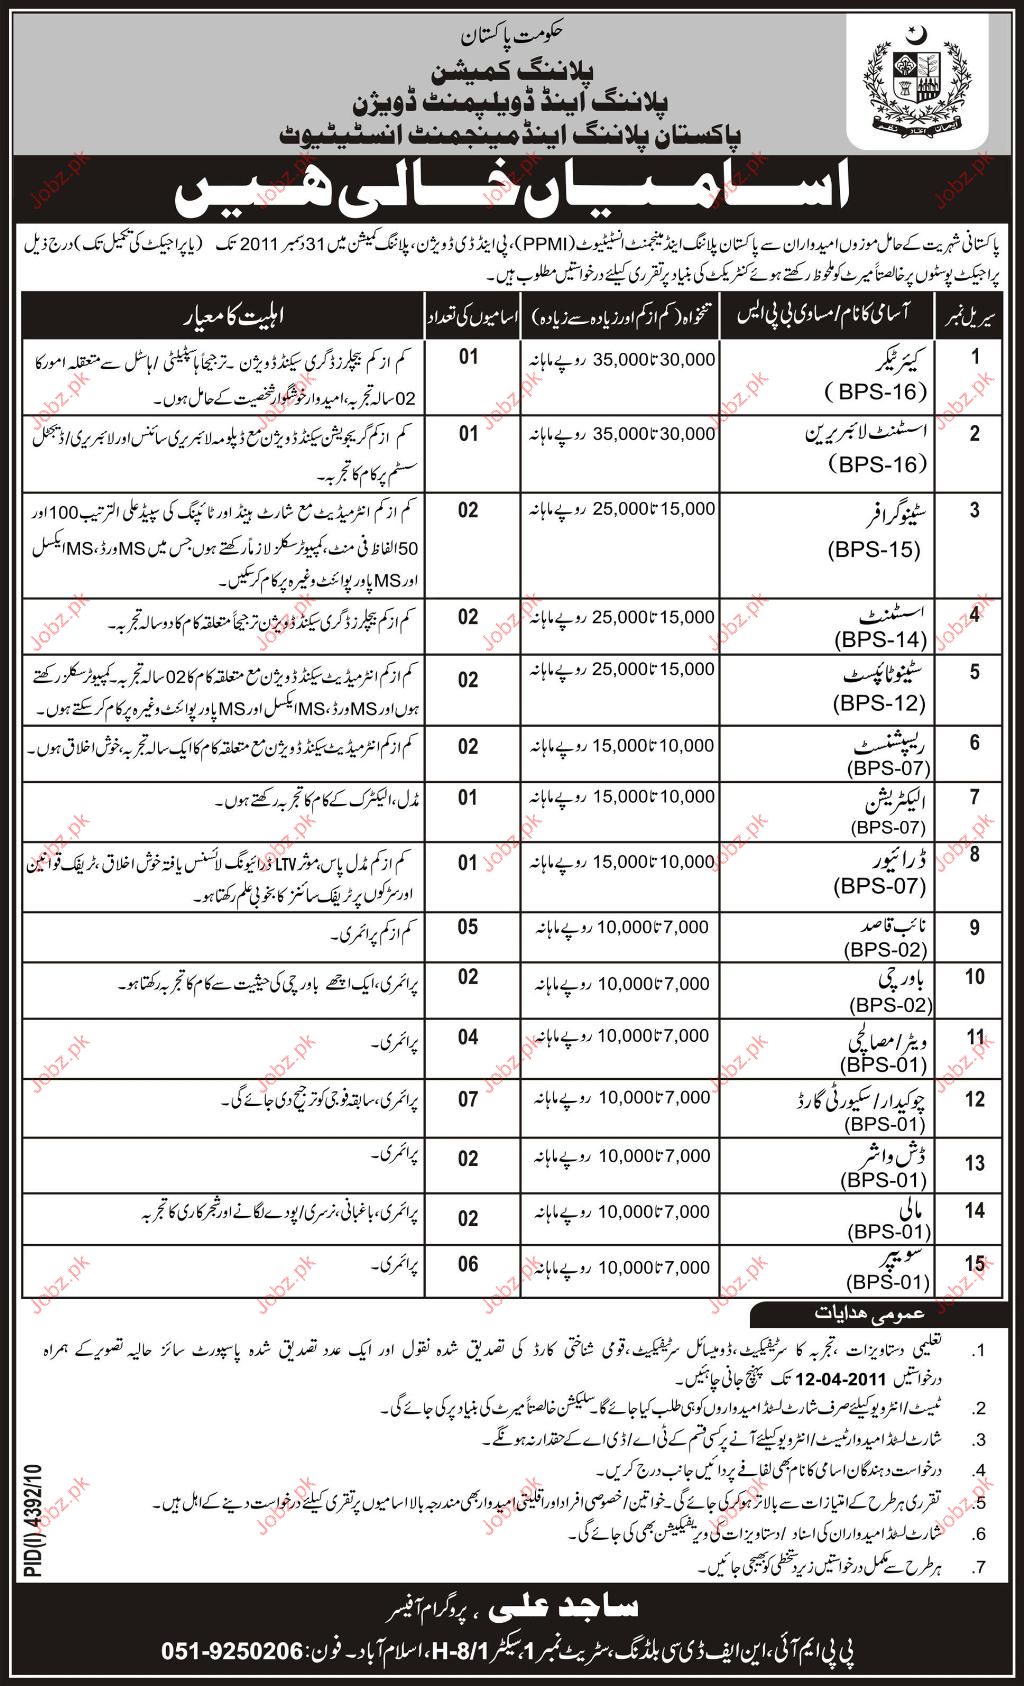 حکومت پاکستان
پلاننگ کمیشن
پلاننگ اینڈ ڈویلپمنٹ ڈویژن
پاکستان پلاننگ اینڈ مینجمنٹ انسٹیٹیوٹ
اسامیاں خالی ہیں
پاکستانی شہریت کے حامل موزوں امیدواران سے پاکستان پلاننگ اینڈ مینجمنٹ انسٹیٹیوٹ (PPMI)، پی اینڈ ڈی ڈویژن، پلاننگ کمیشن میں 31 دسمبر 2011 تک (یا پراجیکٹ کی تکمیل تک) درج ذیل
پراجیکٹ پوسٹوں پر خالصتاً میرٹ کو ملحوظ رکھتے ہوئے کنٹریکٹ کی بنیاد پر تقرری کیلئے درخواستیں مطلوب ہیں۔
سیریل نمبر آسامی کا نام/مساوی بی پی ایس تنخواہ (کم از کم اور زیادہ سے زیادہ) اسامیوں کی تعداد اہلیت کا معیار
1 کیئر ٹیکر (BPS-16) 30,000 تا 35,000 روپے ماہانہ 01 کم از کم بیچلرز ڈگری سیکنڈ ڈویژن۔ ترجیحاً ہاسپٹیلٹی/ہاسٹل سے متعلقہ امور کا
02 سالہ تجربہ، امیدوار خوشگوار شخصیت کے حامل ہوں۔
2 اسسٹنٹ لائبریرین (BPS-16) 30,000 تا 35,000 روپے ماہانہ 01 کم از کم گریجویشن سیکنڈ ڈویژن مع ڈپلومہ لائبریری سائنس اور لائبریری/ڈیجٹل
سسٹم پر کام کا تجربہ۔
3 سٹینوگرافر (BPS-15) 15,000 تا 25,000 روپے ماہانہ 02 کم از کم انٹرمیڈیٹ مع شارٹ ہینڈ اور ٹائپنگ کی سپیڈ علی الترتیب 100 اور
50 الفاظ فی منٹ، کمپیوٹر سکلز لازماً رکھتے ہوں جس میں MS ورڈ، MS ایکسل
اور MS پاور پوائنٹ وغیرہ پر کام کر سکیں۔
4 اسسٹنٹ (BPS-14) 15,000 تا 25,000 روپے ماہانہ 02 کم از کم بیچلرز ڈگری سیکنڈ ڈویژن ترجیحاً متعلقہ کام کا دو سالہ تجربہ۔
5 سٹینو ٹائپسٹ (BPS-12) 15,000 تا 25,000 روپے ماہانہ 02 کم از کم انٹرمیڈیٹ سیکنڈ ڈویژن مع متعلقہ کام کا 02 سالہ تجربہ۔ کمپیوٹر سکلز رکھتے
ہوں اور MS ورڈ، MS ایکسل اور MS پاور پوائنٹ وغیرہ پر کام کر سکتے ہوں۔
6 ریسپشنسٹ (BPS-07) 10,000 تا 15,000 روپے ماہانہ 02 کم از کم انٹرمیڈیٹ سیکنڈ ڈویژن مع متعلقہ کام کا ایک سالہ تجربہ، خوش اخلاق ہوں۔
7 الیکٹریشن (BPS-07) 10,000 تا 15,000 روپے ماہانہ 01 مڈل، الیکٹرک کے کام کا تجربہ رکھتے ہوں۔
8 ڈرائیور (BPS-07) 10,000 تا 15,000 روپے ماہانہ 01 کم از کم مڈل پاس، موثر LTV ڈرائیونگ لائسنس یافتہ خوش اخلاق، ٹریفک قوانین
اور سڑکوں پر ٹریفک سائنز کا بخوبی علم رکھتا ہو۔
9 نائب قاصد (BPS-02) 7,000 تا 10,000 روپے ماہانہ 05 کم از کم پرائمری۔
10 باورچی (BPS-02) 7,000 تا 10,000 روپے ماہانہ 02 پرائمری، ایک اچھے باورچی کی حیثیت سے کام کا تجربہ رکھتا ہو۔
11 ویٹر/مصالچی (BPS-01) 7,000 تا 10,000 روپے ماہانہ 04 پرائمری۔
12 چوکیدار/سکیورٹی گارڈ (BPS-01) 7,000 تا 10,000 روپے ماہانہ 07 پرائمری، سابقہ فوجی کو ترجیح دی جائے گی۔
13 ڈش واشر (BPS-01) 7,000 تا 10,000 روپے ماہانہ 02 پرائمری۔
14 مالی (BPS-01) 7,000 تا 10,000 روپے ماہانہ 02 پرائمری، باغبانی، نرسری/پودے لگانے اور شجرکاری کا تجربہ
15 سویپر (BPS-01) 7,000 تا 10,000 روپے ماہانہ 06 پرائمری۔
عمومی ہدایات
1. تعلیمی دستاویزات، تجربہ کا سرٹیفکیٹ، ڈومیسائل سرٹیفکیٹ، قومی شناختی کارڈ کی تصدیق شدہ نقول اور ایک عدد تصدیق شدہ پاسپورٹ سائز حالیہ تصویر کے ہمراہ
درخواستیں 12-04-2011 تک پہنچ جانی چاہئیں۔
2. ٹیسٹ/انٹرویو کیلئے صرف شارٹ لسٹڈ امیدواروں کو ہی طلب کیا جائے گا۔ سلیکشن خالصتاً میرٹ کی بنیاد پر کی جائے گی۔
3. شارٹ لسٹڈ امیدوار ٹیسٹ/انٹرویو کیلئے آنے پر کسی قسم کے ٹی اے/ڈی اے کے حقدار نہ ہونگے۔
4. درخواست دہندگان اسامی کا نام بھی لفافے پر دائیں جانب درج کریں۔
5. تقرری ہر طرح کے امتیازات سے بالاتر ہو کر کی جائے گی۔ خواتین/خصوصی افراد اور اقلیتی امیدوار بھی مندرجہ بالا اسامیوں پر تقرری کیلئے درخواست دینے کے اہل ہیں۔
6. شارٹ لسٹڈ امیدواران کی اسناد/دستاویزات کی ویریفکیشن بھی کی جائے گی۔
7. ہر طرح سے مکمل درخواستیں زیر دستخطی کو بھیجی جائیں۔
PID(I) 4392/10
ساجد علی، پروگرام آفیسر
پی پی ایم آئی، این ایف ڈی سی بلڈنگ، سٹریٹ نمبر 1، سیکٹر H-8/1، اسلام آباد۔ فون: 051-9250206
Jobz.pk